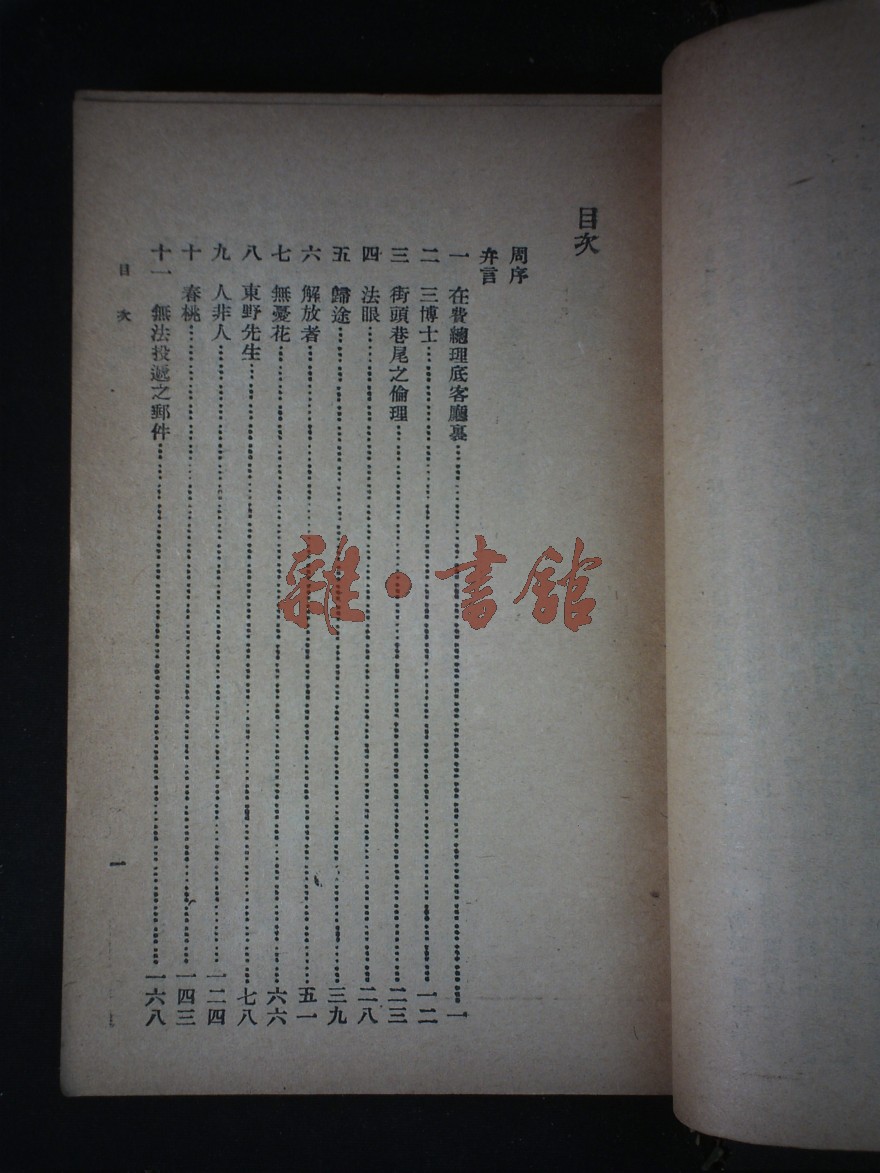 目次
周序
弁言
一 在費總理底客廳裏……一
二 三博士……一二
三 街頭巷尾之倫理……二三
四 法眼……二八
五 歸途……三九
六 解放者……五一
七 無憂花……六六
八 東野先生……七八
九 人非人……一二四
十 春桃……一四三
十一 無法投遞之郵件……一六八
目次
一
雜·書舘